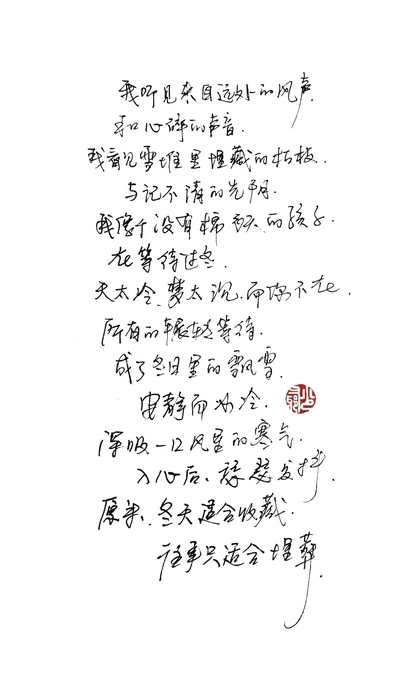 我听见来自远处的风声.
和心碎的声音.
我看见雪堆里埋藏的枯枝.
与记不清的光阴.
我像个没有棉袄的孩子.
在等待过冬.
天太冷.梦太沉.而你不在.
所有的辗转等待.
成了冬日里的飘雪.
安静而冰冷.
深吸一口风里的寒气.
入心后、瑟瑟发抖.
原来、冬天适合收藏.
往事只适合埋葬.